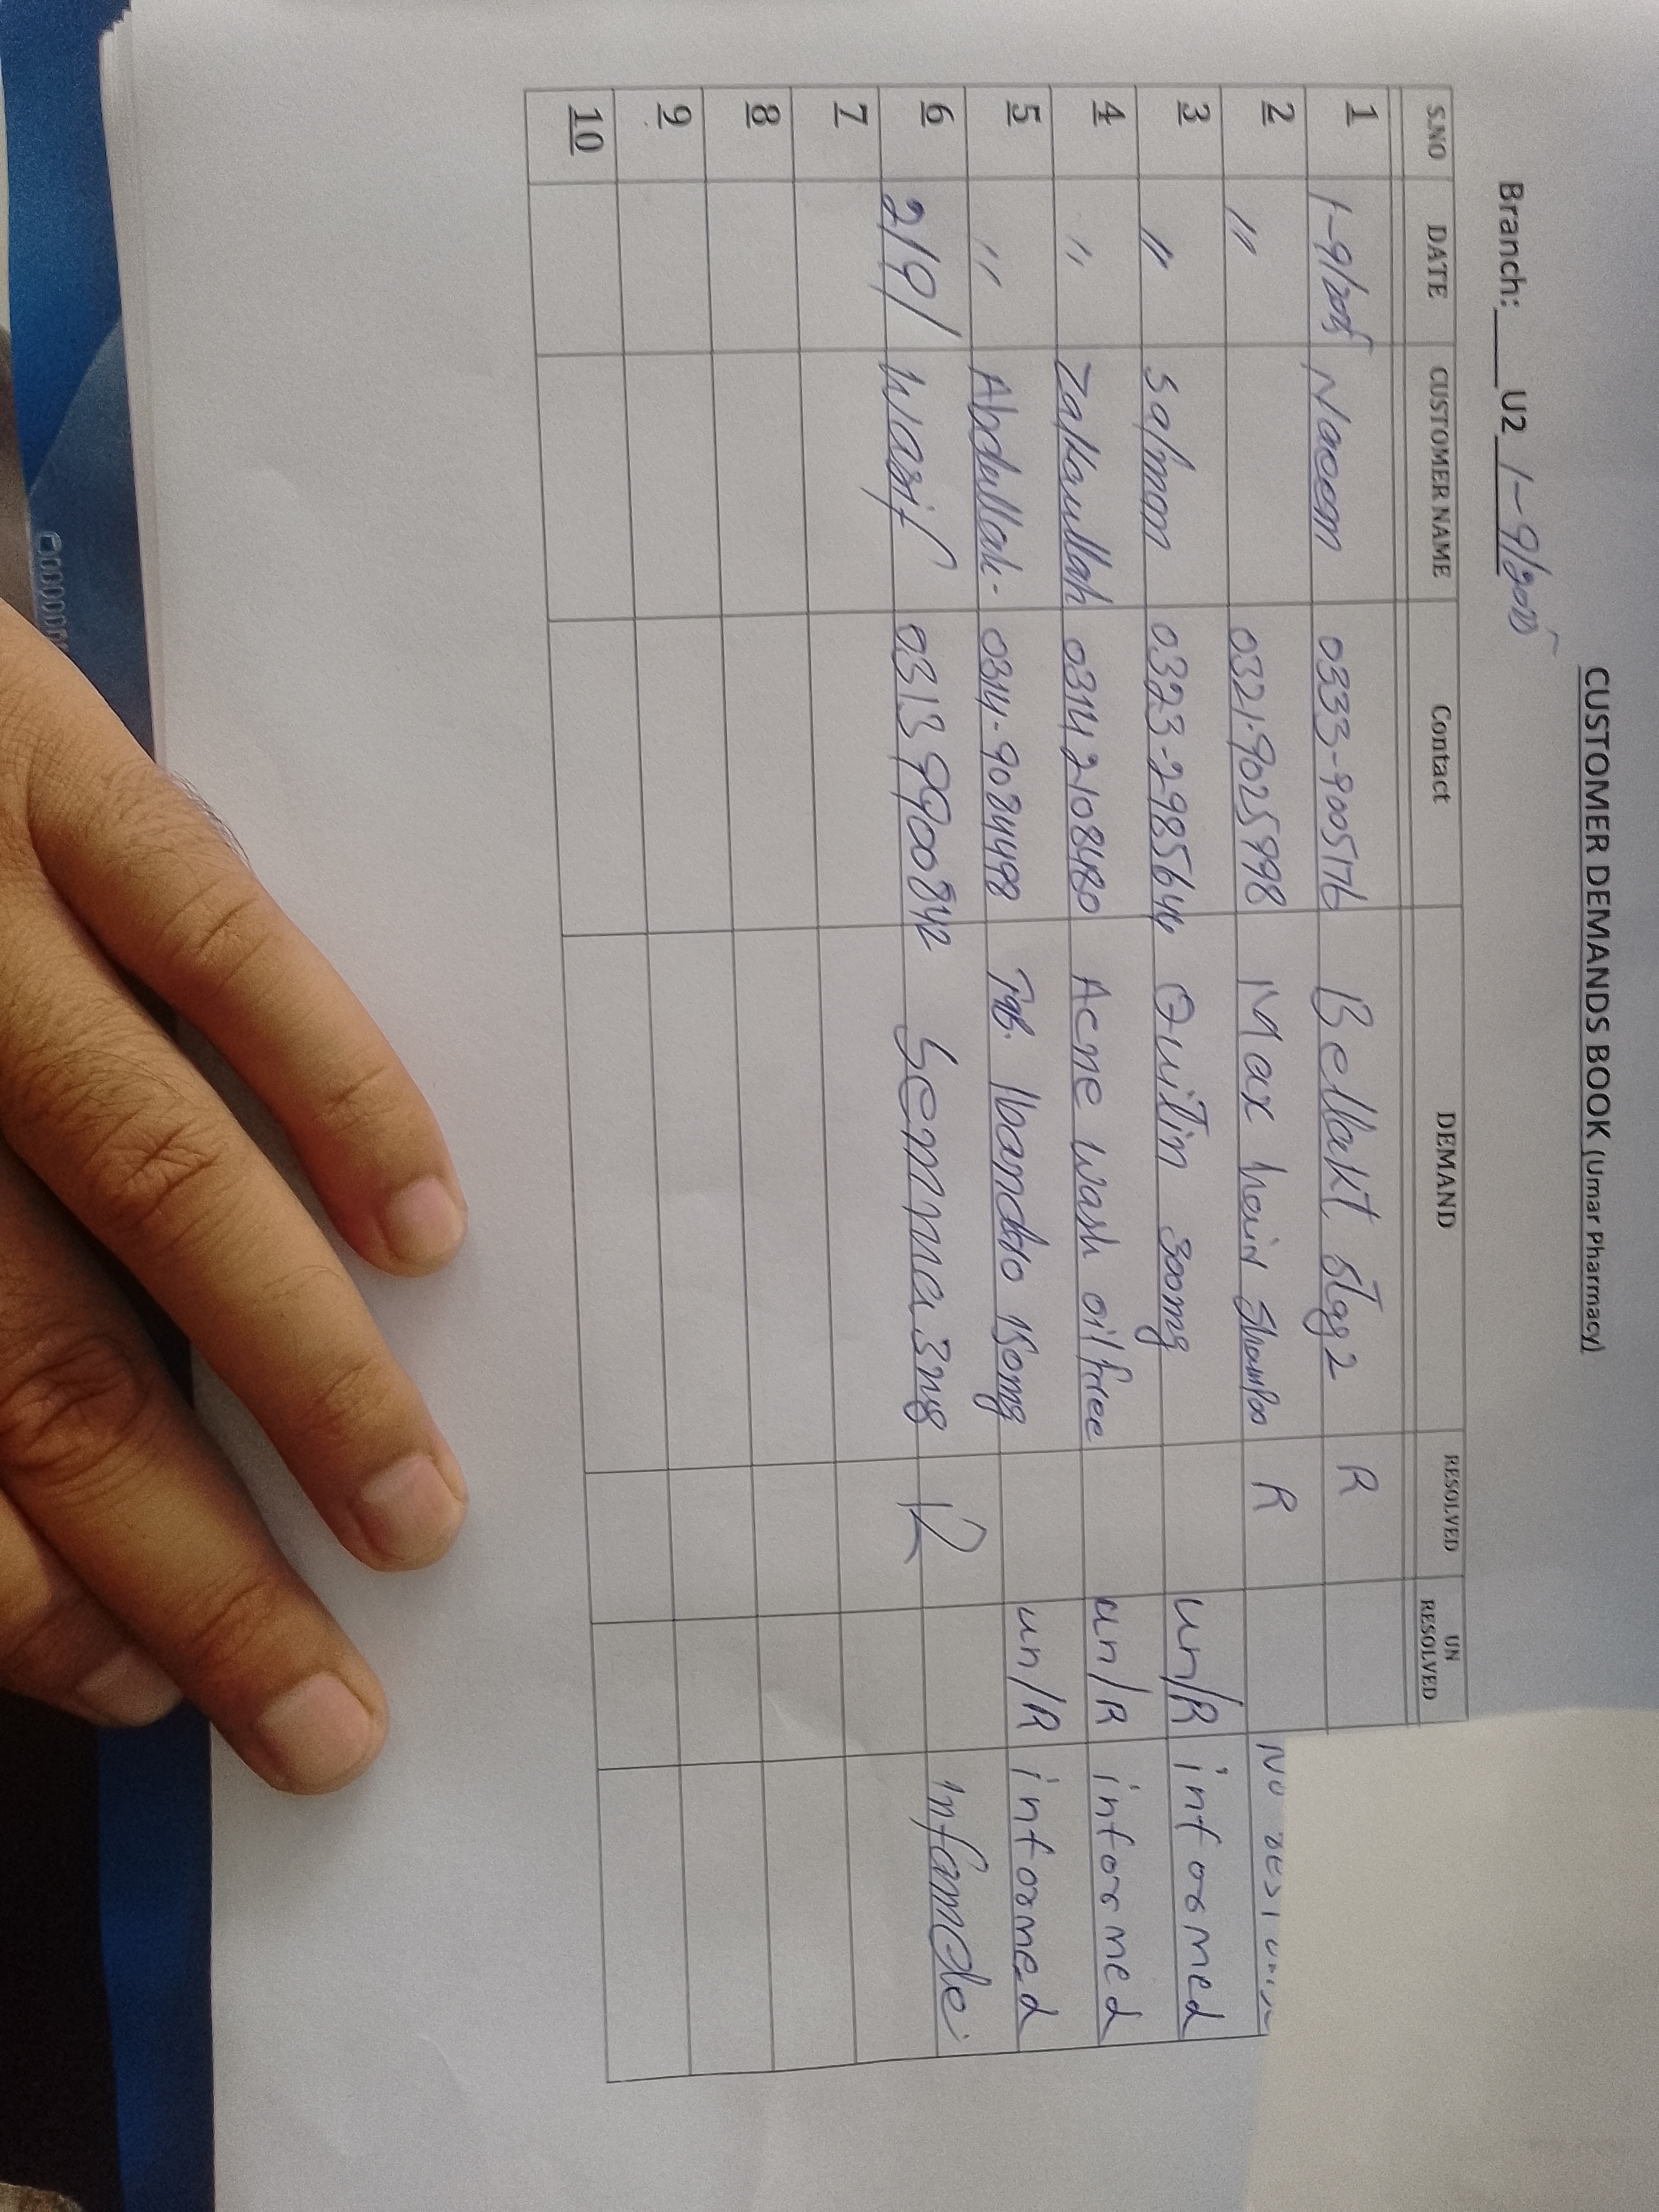 CUSTOMER DEMANDS BOOK (Umar Pharmacy)
Branch: U2 1-9/2025
S.NO DATE CUSTOMER NAME Contact DEMAND RESOLVED UN RESOLVED
1 1-9/2025 Naeem 0333-9005176 Bellakt Stag 2 R
2 " 0321-9025998 Max hair Shampoo R No
3 " Salman 0323-2985644 300mg un/R informed
4 " Zakaullah 03142108480 Acne wash oil free un/R informed
5 " Abdullah- 0314-9084498 Tab. 150mg un/R informed
6 2/9/ Wasif 03139900842 3mg R
7
8
9
10